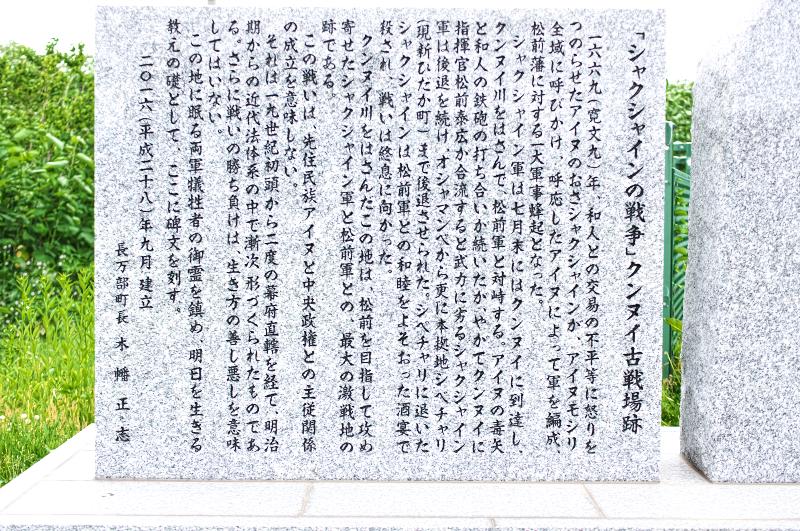 「シャクシャインの戦争」クンヌイ古戦場跡
一六六九(寛文九)年、和人との交易の不平等に怒りを
つのらせたアイヌのおさシャクシャインが、アイヌモシリ
全域に呼びかけ、呼応したアイヌによって軍を編成、
松前藩に対する一大軍事蜂起となった。
シャクシャイン軍は七月末にはクンヌイに到達し、
クンヌイ川をはさんで、松前軍と対峙する。アイヌの毒矢
と和人の鉄砲の打ち合いが続いたが、やがてクンヌイに
指揮官松前泰広が合流すると武力に劣るシャクシャイン
軍は後退を続け、オシャマンベから更に本拠地シベチャリ
(現新ひだか町)まで後退させられた。シベチャリに退いた
シャクシャインは松前軍との和睦をよそおった酒宴で
殺され、戦いは終息に向かった。
クンヌイ川をはさんだこの地は、松前を目指して攻め
寄せたシャクシャイン軍と松前軍との、最大の激戦地の
跡である。
この戦いは、先住民族アイヌと中央政権との主従関係
の成立を意味しない。
それは一九世紀初頭から二度の幕府直轄を経て、明治
期からの近代法体系の中で漸次形づくられたものであ
る。さらに戦いの勝ち負けは、生き方の善し悪しを意味
してはいない。
この地に眠る両軍犠牲者の御霊を鎮め、明日を生きる
教えの礎として、ここに碑文を刻す。
二〇一六(平成二十八)年九月建立
長万部町長 木幡正志